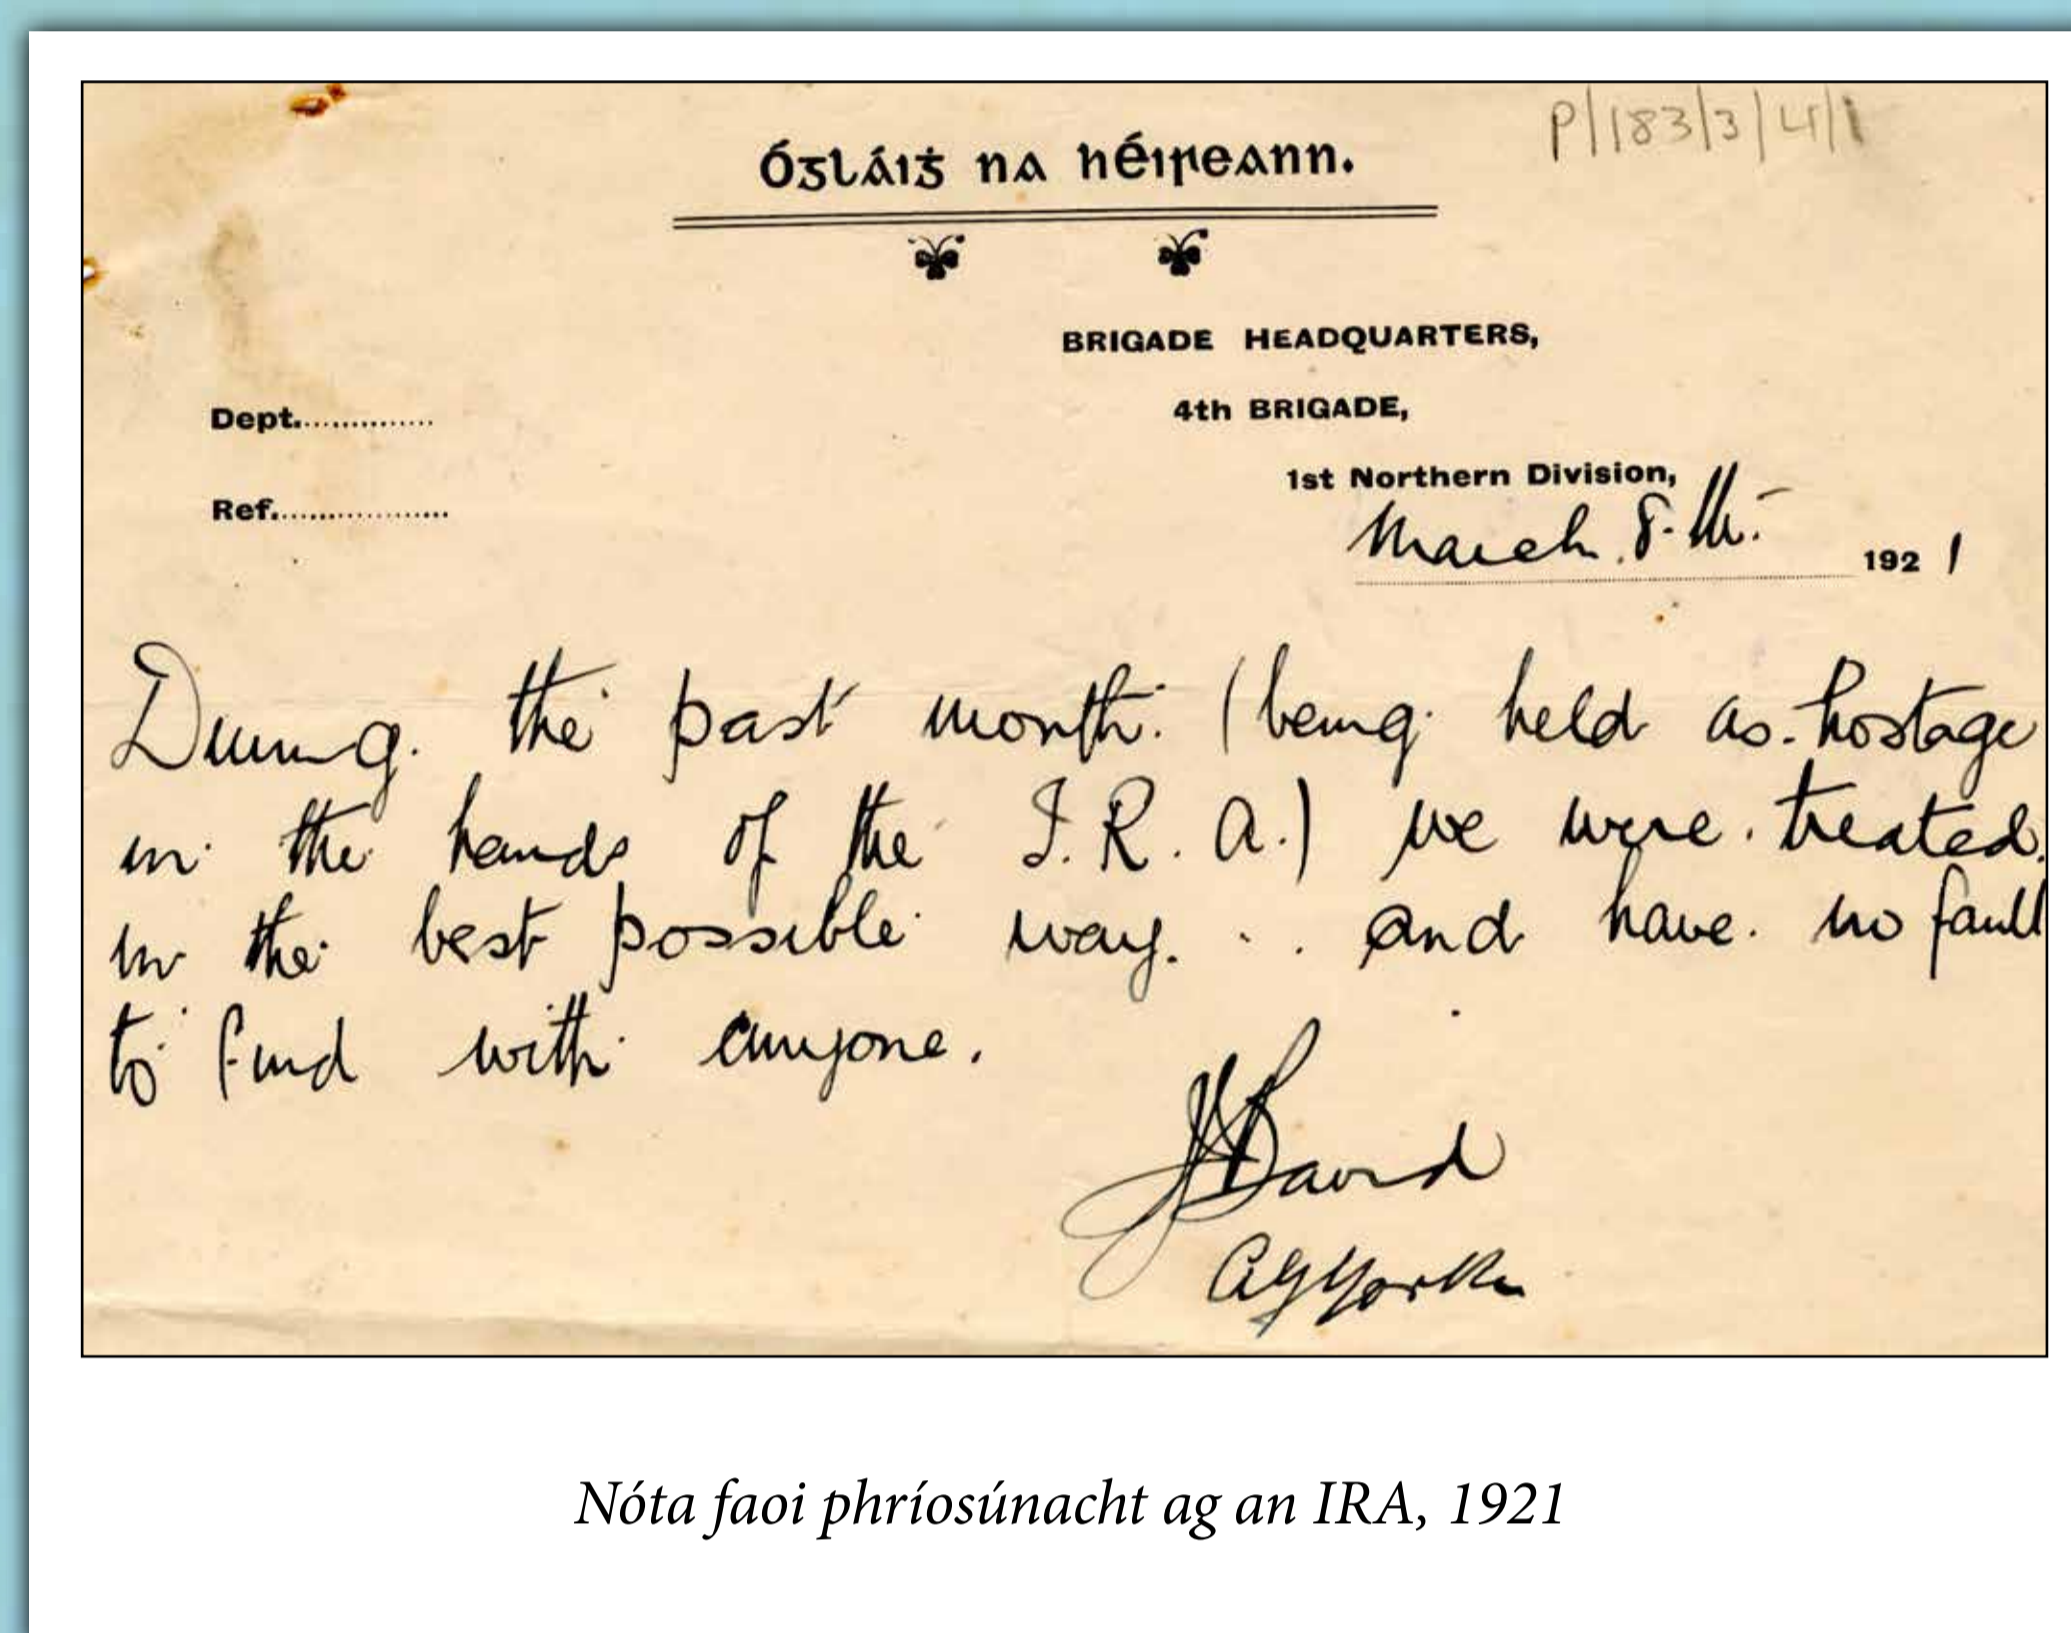 P/183/3/4/1
Ógláiġ na hÉireann.
BRIGADE HEADQUARTERS,
4th BRIGADE,
Dept..............
1st Northern Division,
Ref...................
March 8th 1921
During the past month (being held as hostage
in the hands of the I.R.A.) we were treated
in the best possible way. . . and have no fault
to find with anyone.
J David
Nóta faoi phríosúnacht ag an IRA, 1921